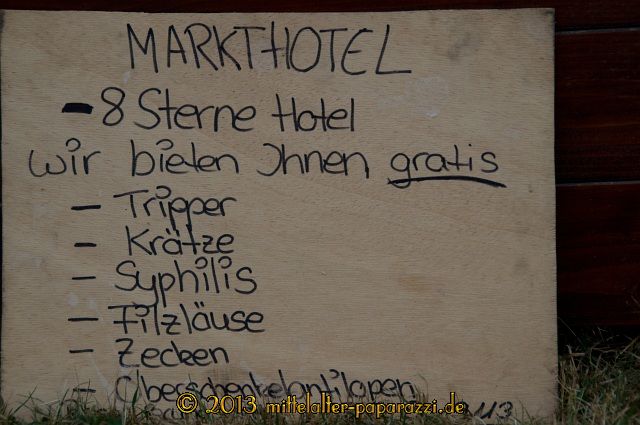 MARKTHOTEL
- 8 Sterne Hotel
wir bieten Ihnen gratis
- Tripper
- Krätze
- Syphilis
- Filzläuse
- Zecken
- Oberschenkelantilopen
© 2013 mittelalter-paparazzi.de